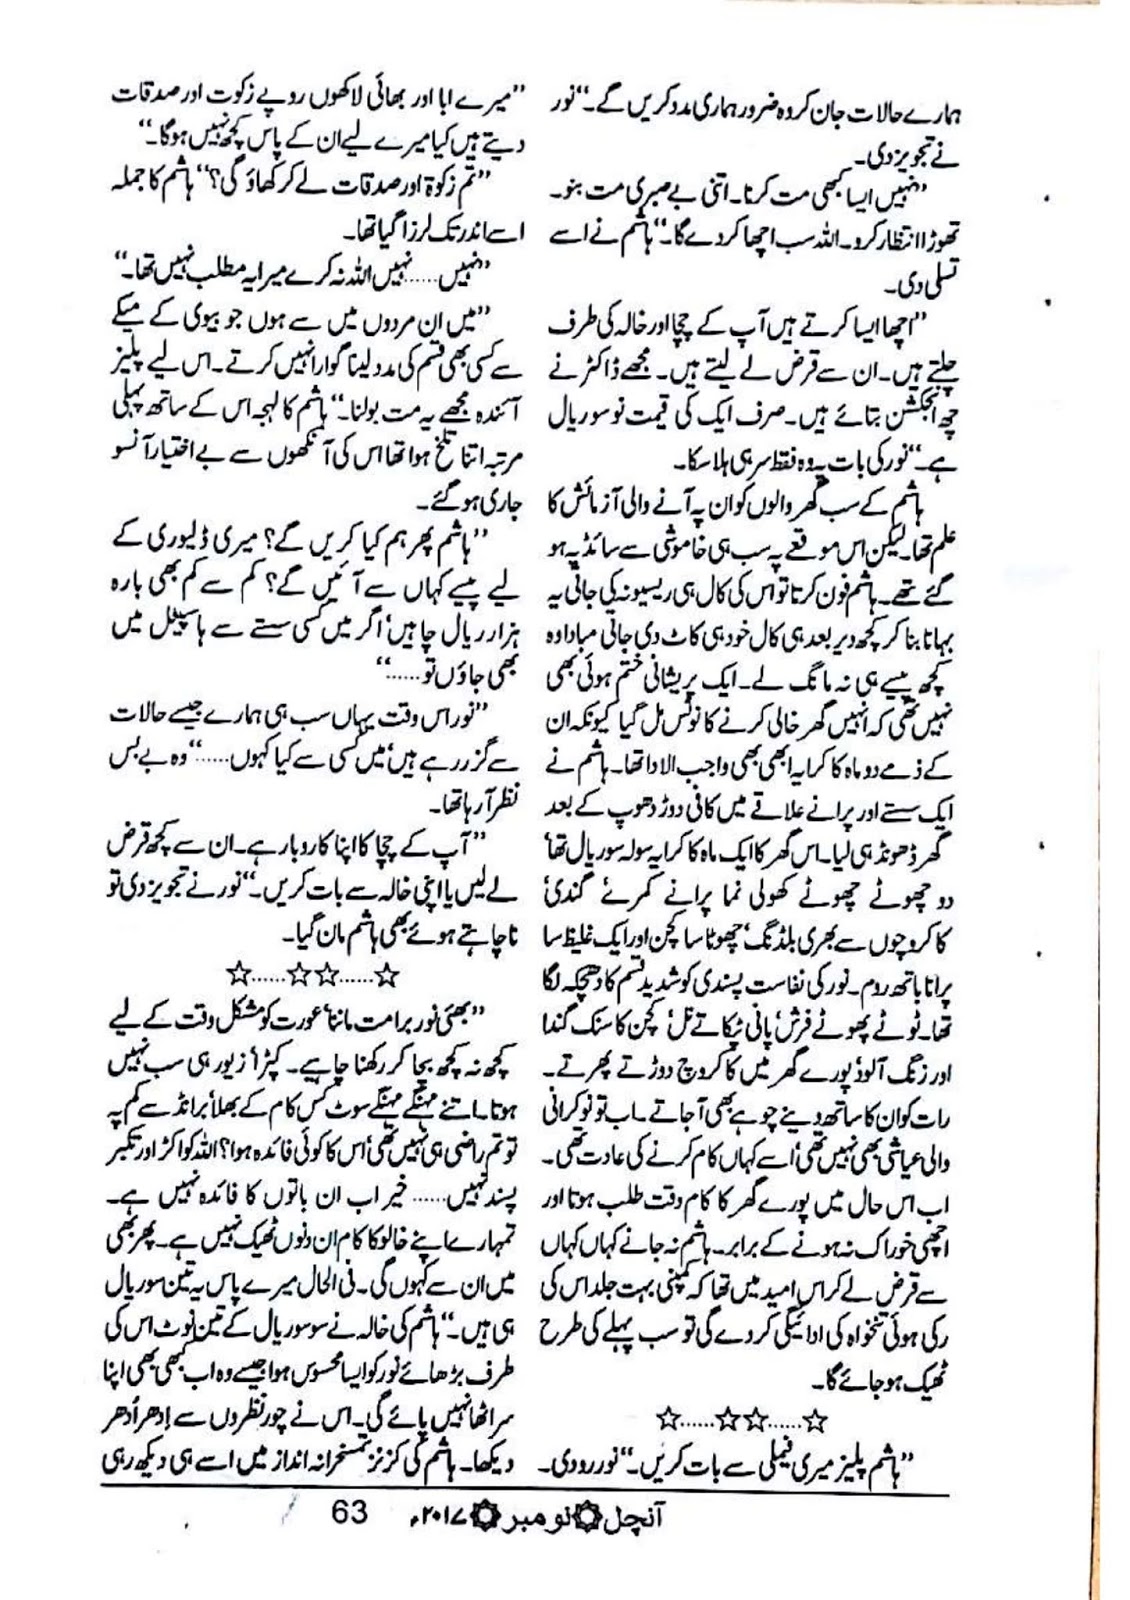 ہمارے حالات جان کر وہ ضرور ہماری مدد کریں گے۔“ نور
نے تجویز دی۔
”نہیں ایسا کبھی مت کرنا۔ اتنی بے صبری مت بنو۔
تھوڑا انتظار کرو۔ اللہ سب اچھا کردے گا۔“ ہاشم نے اسے
تسلی دی۔
”اچھا ایسا کرتے ہیں آپ کے چچا اور خالہ کی طرف
چلتے ہیں۔ ان سے قرض لے لیتے ہیں۔ مجھے ڈاکٹر نے
چھ انجکشن بتائے ہیں۔ صرف ایک کی قیمت نو سو ریال
ہے۔“ نور کی بات پہ وہ فقط سر ہی ہلا سکا۔
ہاشم کے سب گھر والوں کو ان پہ آنے والی آزمائش کا
علم تھا۔ لیکن اس موقعے پہ سب ہی خاموشی سے سائڈ پہ ہو
گئے تھے۔ ہاشم فون کرتا تو اس کی کال ہی ریسیو نہ کی جاتی یہ
بہانا بنا کر کچھ دیر بعد ہی کال خود ہی کاٹ دی جاتی مبادا وہ
کچھ پیسے ہی نہ مانگ لے۔ ایک پریشانی ختم ہوئی بھی
نہیں تھی کہ انہیں گھر خالی کرنے کا نوٹس مل گیا کیونکہ ان
کے ذمے دو ماہ کا کرایہ ابھی بھی واجب الادا تھا۔ ہاشم نے
ایک سستے اور پرانے علاقے میں کافی دوڑ دھوپ کے بعد
گھر ڈھونڈ ہی لیا۔ اس گھر کا ایک ماہ کا کرایہ سولہ سو ریال تھا‘
دو چھوٹے چھوٹے کھولی نما پرانے کمرے‘ گندی‘
کاکروچوں سے بھری بلڈنگ‘ چھوٹا سا کچن اور ایک غلیظ سا
پرانا باتھ روم۔ نور کی نفاست پسندی کو شدید قسم کا دھچکہ لگا
تھا۔ ٹوٹے پھوٹے فرش‘ پانی ٹپکاتے نل‘ کچن کا سنک گندا
اور زنگ آلود‘ پورے گھر میں کاکروچ دوڑتے پھرتے۔
رات کو ان کا ساتھ دینے چوہے بھی آجاتے۔ اب تو نوکرانی
والی عیاشی بھی نہیں تھی‘ اسے کہاں کام کرنے کی عادت تھی۔
اب اس حال میں پورے گھر کا کام وقت طلب ہوتا اور
اچھی خوراک نہ ہونے کے برابر۔ ہاشم نہ جانے کہاں کہاں
سے قرض لے کر اس امید میں تھا کہ کمپنی بہت جلد اس کی
رکی ہوئی تنخواہ کی ادائیگی کردے گی تو سب پہلے کی طرح
ٹھیک ہوجائے گا۔
☆......☆☆......☆
”ہاشم پلیز میری فیملی سے بات کریں۔“ نور رو دی۔
”میرے ابا اور بھائی لاکھوں روپے زکوت اور صدقات
دیتے ہیں کیا میرے لیے ان کے پاس کچھ نہیں ہوگا۔“
”تم زکوۃ اور صدقات لے کر کھاؤ گی؟“ ہاشم کا جملہ
اسے اندر تک لرزا گیا تھا۔
”نہیں...... نہیں اللہ نہ کرے میرا یہ مطلب نہیں تھا۔“
”میں ان مردوں میں سے ہوں جو بیوی کے میکے
سے کسی بھی قسم کی مدد لینا گوارا نہیں کرتے۔ اس لیے پلیز
آئندہ مجھے یہ مت بولنا۔“ ہاشم کا لہجہ اس کے ساتھ پہلی
مرتبہ اتنا تلخ ہوا تھا اس کی آنکھوں سے بے اختیار آنسو
جاری ہوگئے۔
”ہاشم پھر ہم کیا کریں گے؟ میری ڈلیوری کے
لیے پیسے کہاں سے آئیں گے؟ کم سے کم بھی بارہ
ہزار ریال چاہیں‘ اگر میں کسی سستے سے ہاسپٹل میں
بھی جاؤں تو......“
”نور اس وقت یہاں سب ہی ہمارے جیسے حالات
سے گزر رہے ہیں‘ میں کسی سے کیا کہوں......“ وہ بے بس
نظر آرہا تھا۔
”آپ کے چچا کا اپنا کاروبار ہے۔ ان سے کچھ قرض
لے لیں یا اپنی خالہ سے بات کریں۔“ نور نے تجویز دی تو
نا چاہتے ہوئے بھی ہاشم مان گیا۔
☆......☆☆......☆
”بھئی نور برا مت ماننا‘ عورت کو مشکل وقت کے لیے
کچھ نہ کچھ بچا کر رکھنا چاہیے۔ کپڑا‘ زیور ہی سب نہیں
ہوتا۔ اتنے مہنگے مہنگے سوٹ کس کام کے بھلا‘ برانڈ سے کم پہ
تو تم راضی ہی نہیں تھی‘ اس کا کوئی فائدہ ہوا؟ اللہ کو اکڑ اور تکبر
پسند نہیں...... خیر اب ان باتوں کا فائدہ نہیں ہے۔
تمہارے اپنے خالو کا کام ان دنوں ٹھیک نہیں ہے۔ پھر بھی
میں ان سے کہوں گی۔ فی الحال میرے پاس یہ تین سو ریال
ہی ہیں۔“ ہاشم کی خالہ نے سو سو ریال کے تین نوٹ اس کی
طرف بڑھائے نور کو ایسا محسوس ہوا جیسے وہ اب کبھی بھی اپنا
سر اٹھا نہیں پائے گی۔ اس نے چور نظروں سے اِدھر اُدھر
دیکھا۔ ہاشم کی کزنز تمسخرانہ انداز میں اسے ہی دیکھ رہی
آنچل ۞ نومبر ۞ ۲۰۱۷ء 63